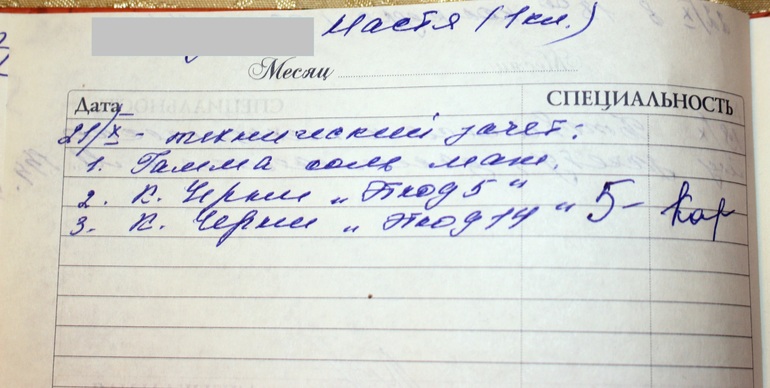 Настя (1 кл.)
Месяц
Дата СПЕЦИАЛЬНОСТЬ
21/X - технический зачет:
1. Гамма соль маж.
2. К. Черни „Этюд 5“
3. К. Черни „Этюд 14“ 5-